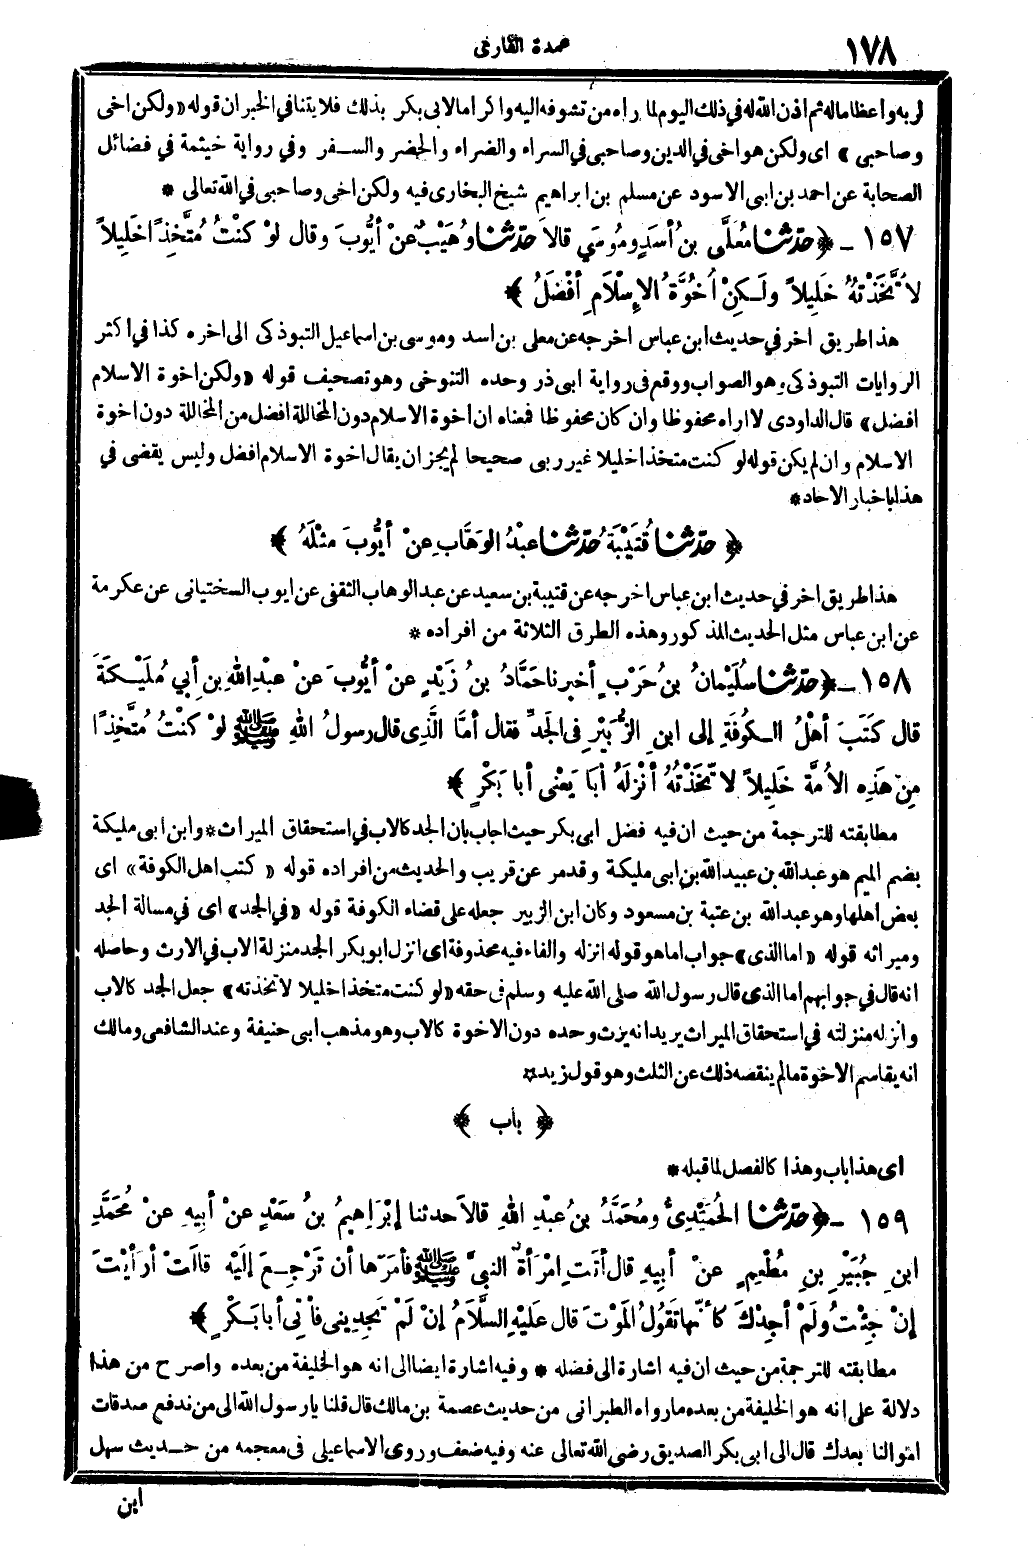 ١٧٨
عمدة القارئ
لربه وإعظاما له ثم اذن الله له في ذلك اليوم لما رآه من تشوفه اليه واكراما لابى بكر بذلك فلا يتنافى الخبر ان قوله «ولكن اخى
وصاحبى» اى ولكن هو اخى في الدين وصاحبى في السراء والضراء والحضر والسفر وفي رواية خيثمة في فضائل
الصحابة عن احمد بن ابى الاسود عن مسلم بن ابراهيم شيخ البخارى فيه ولكن اخى وصاحبى في الله تعالى *
١٥٧ - ﴿حدّثنا مُعَلَّى بنُ أسَدٍ ومُوسَي قالاَ حدّثنا وُهَيْبٌ عنْ أيُّوبَ وقال لوْ كنْتُ مُتَّخِذًا خَلِيلاً
لاَتَّخَذْتُهُ خَلِيلاً ولَـكِنْ أُخُوَّةُ الإِسْلاَمِ أفْضَلُ﴾
هذا طريق اخر في حديث ابن عباس اخرجه عن معلى بن اسد وموسى بن اسماعيل التبوذكى الى اخره كذا في اكثر
الروايات التبوذكى وهو الصواب ووقع في رواية ابى ذر وحده التنوخى وهو تصحيف قوله «ولكن اخوة الاسلام
افضل» قال الداودى لا اراه محفوظا وان كان محفوظا فمعناه ان اخوة الاسلام دون المخاللة افضل من المخاللة دون اخوة
الاسلام وان لم يكن قوله لو كنت متخذا خليلا غير ربى صحيحا لم يجز ان يقال اخوة الاسلام افضل وليس يقضى في
هذا باخبار الاحاد*
﴿حدّثنا قُتَيْبَةُ حدّثنا عبْدُ الوَهَّابِ عنْ أيُّوبَ مثْلَهُ﴾
هذا طريق اخر في حديث ابن عباس اخرجه عن قتيبة بن سعيد عن عبد الوهاب الثقفى عن ايوب السختيانى عن عكرمة
عن ابن عباس مثل الحديث المذكور وهذه الطرق الثلاثة من افراده *
١٥٨ - ﴿حدّثنا سُلَيْمانُ بنُ حَرْبٍ أخبرنا حَمَّادُ بنُ زَيْدٍ عنْ أيُّوبَ عنْ عبْدِ اللهِ بنِ أبي مُلَيْـكَةَ
قال كَتَبَ أهْلُ الـكُوفَةِ إلى ابنِ الزُّبَيْرِ فى الجَدِّ فقال أمَّا الَّذِى قال رسولُ اللهِ ﷺ لوْ كنْتُ مُتَّخِذًا
مِنْ هَذِهِ الأُمَّةِ خَلِيلاً لاَتَّخَذْتُهُ أنْزَلَهُ أبًا يَعْنى أبا بَكْرٍ﴾
مطابقته للترجمة من حيث ان فيه فضل ابى بكر حيث اجاب بان الجد كالاب في استحقاق الميراث*وابن ابى مليكة
بضم الميم هو عبد الله بن عبيد الله بن ابى مليكة وقد مر عن قريب والحديث من افراده قوله «كتب اهل الكوفة» اى
بعض اهلها وهو عبد الله بن عتبة بن مسعود وكان ابن الزبير جعله على قضاء الكوفة قوله «في الجد» اى في مسالة الجد
وميراثه قوله «اما الذى» جواب اما هو قوله انزله والفاء فيه محذوفة اى انزل ابو بكر الجد منزلة الاب في الارث وحاصله
انه قال في جوابهم اما الذى قال رسول الله صلى الله عليه وسلم في حقه «لو كنت متخذا خليلا لاتخذته» جعل الجد كالاب
وانزله منزلته في استحقاق الميراث يريد انه يرث وحده دون الاخوة كالاب وهو مذهب ابى حنيفة وعند الشافعى ومالك
انه يقاسم الاخوة ما لم ينقصه ذلك عن الثلث وهو قول زيد*
﴿ باب ﴾
اى هذا باب وهذا كالفصل لما قبله*
١٥٩ - ﴿حدّثنا الحُمَيْدِىُّ ومُحَمَّدُ بنُ عبْدِ اللهِ قالاَ حدثنا إبْرَاهِيمُ بنُ سَعْدٍ عنْ أبِيهِ عنْ مُحَمَّدِ
ابنِ جُبَيْرِ بنِ مُطْعِمٍ عنْ أبِيهِ قال أتَتِ امْرَأةٌ النبيَّ ﷺ فأمَرَها أن تَرْجِـعَ إلَيْهِ قالَتْ أرَأيْتَ
إنْ جِئْتُ ولَمْ أجِدْكَ كأنَّها تَقُولُ المَوْتَ قال عَلَيْهِ السَّلاَمُ إنْ لَمْ تَجِدِينى فأتى أبا بَكْرٍ﴾
مطابقته للترجمة من حيث ان فيه اشارة الى فضله * وفيه اشارة ايضا الى انه هو الخليفة من بعده واصرح من هذا
دلالة على انه هو الخليفة من بعده ما رواه الطبرانى من حديث عصمة بن مالك قال قلنا يا رسول الله الى من ندفع صدقات
اموالنا بعدك قال الى ابى بكر الصديق رضى الله تعالى عنه وفيه ضعف وروى الاسماعيلى في معجمه من حـديث سهل
ابن